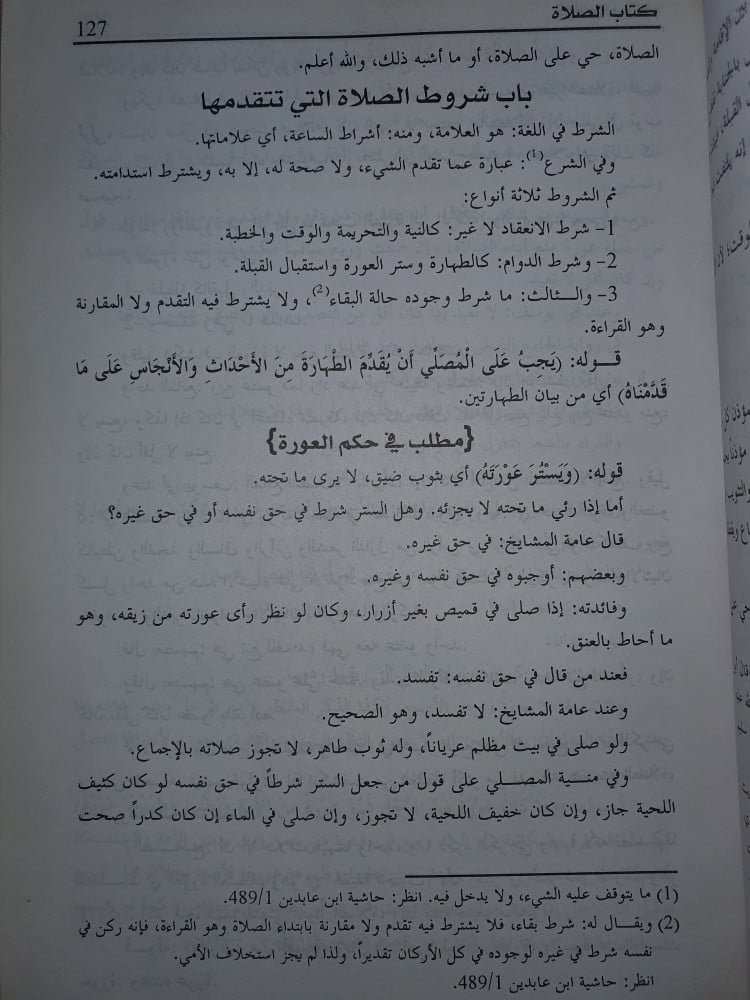 كتاب الصلاة
127
الصلاة، حي على الصلاة، أو ما أشبه ذلك، والله أعلم.
باب شروط الصلاة التي تتقدمها
الشرط في اللغة: هو العلامة، ومنه: أشراط الساعة، أي علاماتها.
وفي الشرع(1): عبارة عما تقدم الشيء، ولا صحة له، إلا به، ويشترط استدامته.
ثم الشروط ثلاثة أنواع:
1- شرط الانعقاد لا غير: كالنية والتحريمة والوقت والخطبة.
2- وشرط الدوام: كالطهارة وستر العورة واستقبال القبلة.
3- والـثالث: ما شرط وجوده حالة البقاء(2)، ولا يشترط فيه التقدم ولا المقارنة
وهو القراءة.
قـوله: (يَجِبُ عَلَى الْمُصَلِّي أَنْ يُقَدِّمَ الطَّهَارَةَ مِنَ الأَحْدَاثِ وَالأَنْجَاسِ عَلَى مَا
قَدَّمْنَاهُ) أي من بيان الطهارتين.
{مطلب في حكم العورة}
قوله: (وَيَسْتُرَ عَوْرَتَهُ) أي بثوب ضيق، لا يرى ما تحته.
أما إذا رئي ما تحته لا يجزئه. وهل الستر شرط في حق نفسه أو في حق غيره؟
قال عامة المشايخ: في حق غيره.
وبعضهم: أوجبوه في حق نفسه وغيره.
وفائدته: إذا صلى في قميص بغير أزرار، وكان لو نظر رأى عورته من زيقه، وهو
ما أحاط بالعنق.
فعند من قال في حق نفسه: تفسد.
وعند عامة المشايخ: لا تفسد، وهو الصحيح.
ولو صلى في بيت مظلم عرياناً، وله ثوب طاهر، لا تجوز صلاته بالإجماع.
وفي منية المصلي على قول من جعل الستر شرطاً في حق نفسه لو كان كثيف
اللحية جاز، وإن كان خفيف اللحية، لا تجوز، وإن صلى في الماء إن كان كدراً صحت
(1) ما يتوقف عليه الشيء، ولا يدخل فيه. انظر: حاشية ابن عابدين 489/1.
(2) ويقـال له: شرط بقاء، فلا يشترط فيه تقدم ولا مقارنة بابتداء الصلاة وهو القراءة، فإنه ركن في
نفسه شرط في غيره لوجوده في كل الأركان تقديراً، ولذا لم يجز استخلاف الأمي.
انظر: حاشية ابن عابدين 489/1.